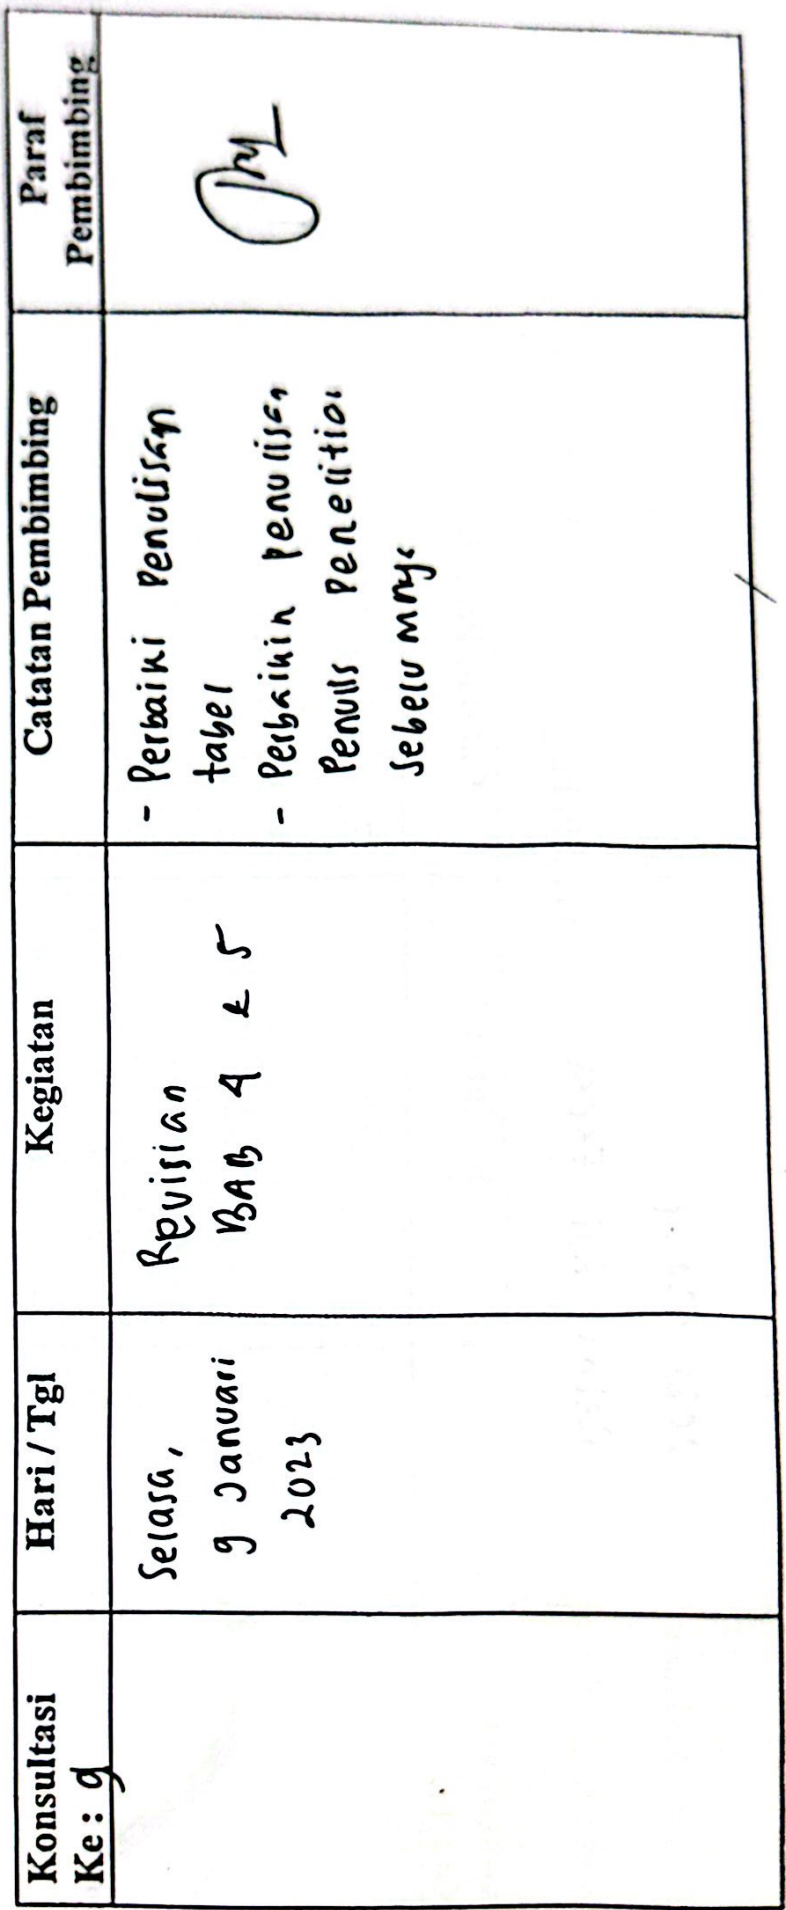 Konsultasi
Ke : 9
Hari / Tgl
Kegiatan
Catatan Pembimbing
Paraf
Pembimbing
Selasa,
9 Januari
2023
Revisian
BAB 4 & 5
- Perbaiki Penulisan
tabel
- Perbaikin penulisan
Penulis Penelitian
Sebelumnya